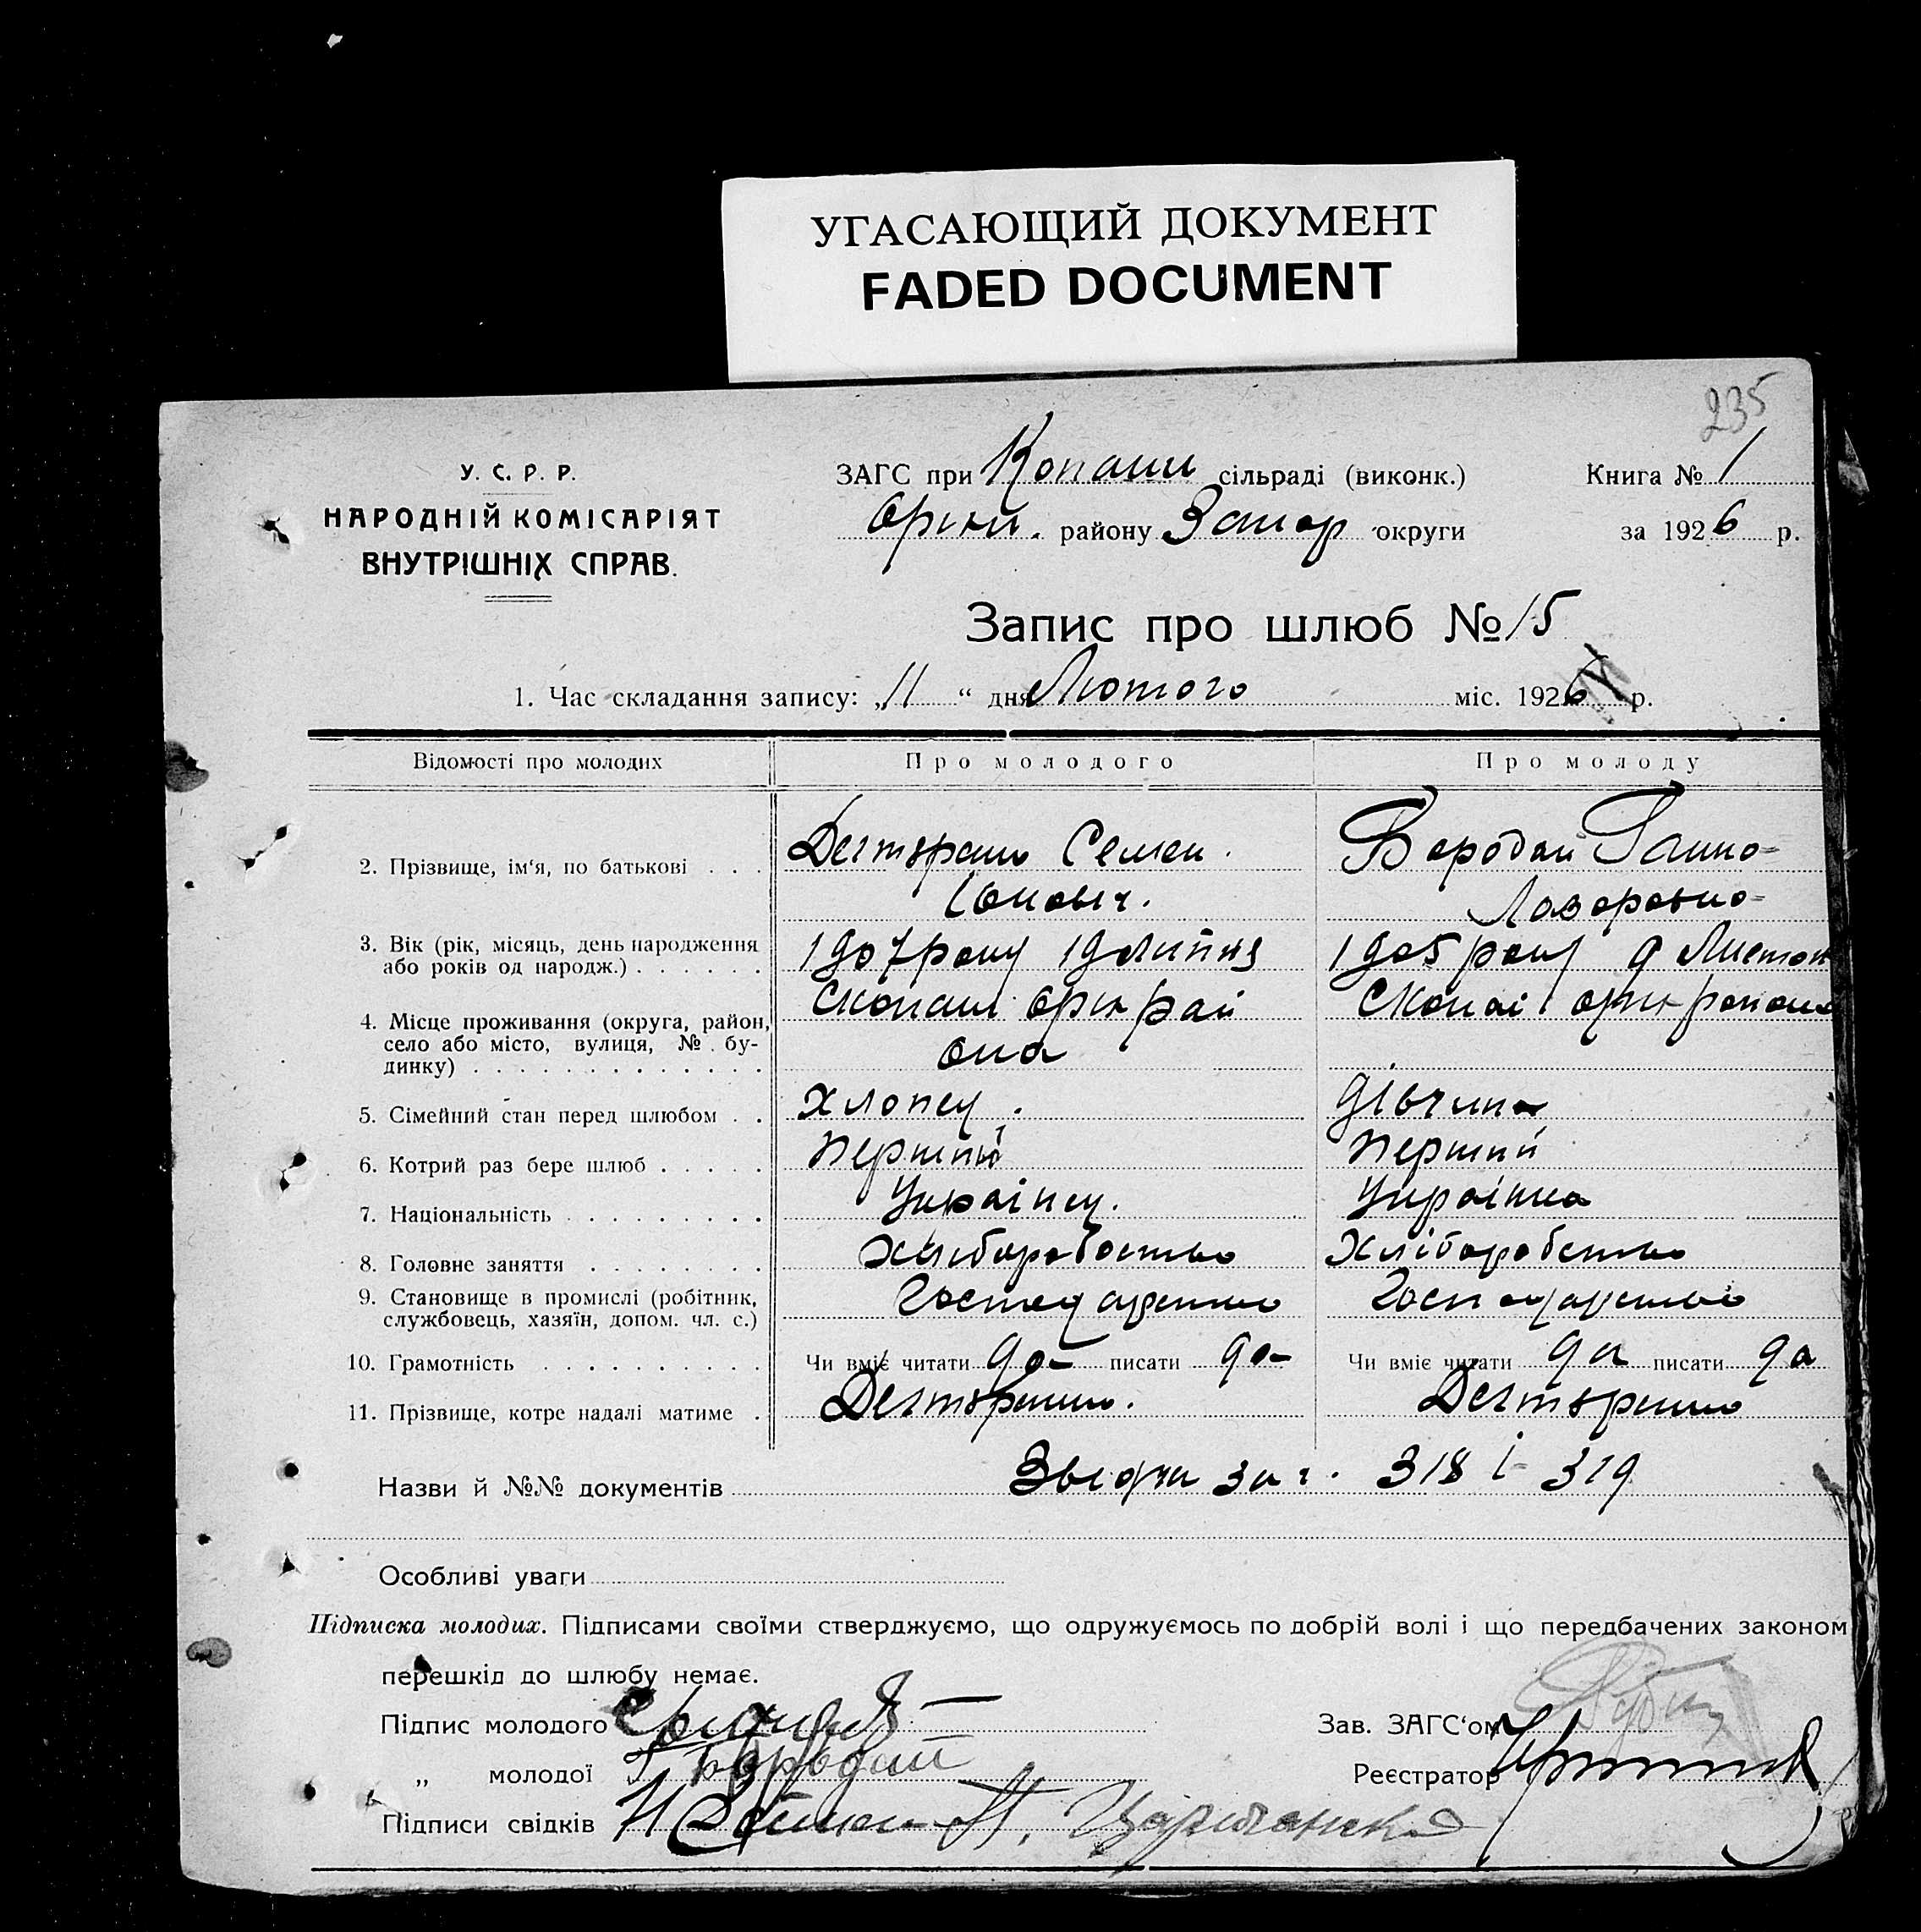 УГАСАЮЩИЙ ДОКУМЕНТ
FADED DOCUMENT
235
У. С. Р. Р.
НАРОДНІЙ КОМІСАРІЯТ
ВНУТРІШНІХ СПРАВ.
ЗАГС при Копани сільраді (виконк.)
Оріхи. району Запор округи
Книга № 1
за 1926 р.
Запис про шлюб № 15
1. Час складання запису: „11“ дня Лютого міс. 1926 р.
Відомості про молодих Про молодого Про молоду
2. Прізвище, ім‘я, по батькові . . . Семен Бородай Ганна
Лазаровна
3. Вік (рік, місяць, день народження 1907 року 19 липня 1905 року 9 Листоп
або років од народж.) . . . . . .
4. Місце проживання (округа, район, Скопани Оріх рай Скопані Оріх района
село або місто, вулиця, № бу- она
динку) . . . . . . . . . . . . .
5. Сімейний стан перед шлюбом . . Хлопец. Дівчина
6. Котрий раз бере шлюб . . . . . Перший Перший
7. Національність . . . . . . . . . Українец. Українка
8. Головне заняття . . . . . . . . Хліборобство Хліборобство
9. Становище в промислі (робітник, Господарство Господарство
службовець, хазяїн, допом. чл. с.)
10. Грамотність . . . . . . . . . . Чи вміє читати да писати да Чи вміє читати да писати да
11. Прізвище, котре надалі матиме .
Назви й №№ документів за ч. 318 і 319
Особливі уваги
Підписка молодих. Підписами своїми стверджуємо, що одружуємось по добрій волі і що передбачених законом
перешкід до шлюбу немає.
Підпис молодого
Зав. ЗАГС‘ом
„ молодої Бородай
Реєстратор
Підписи свідків